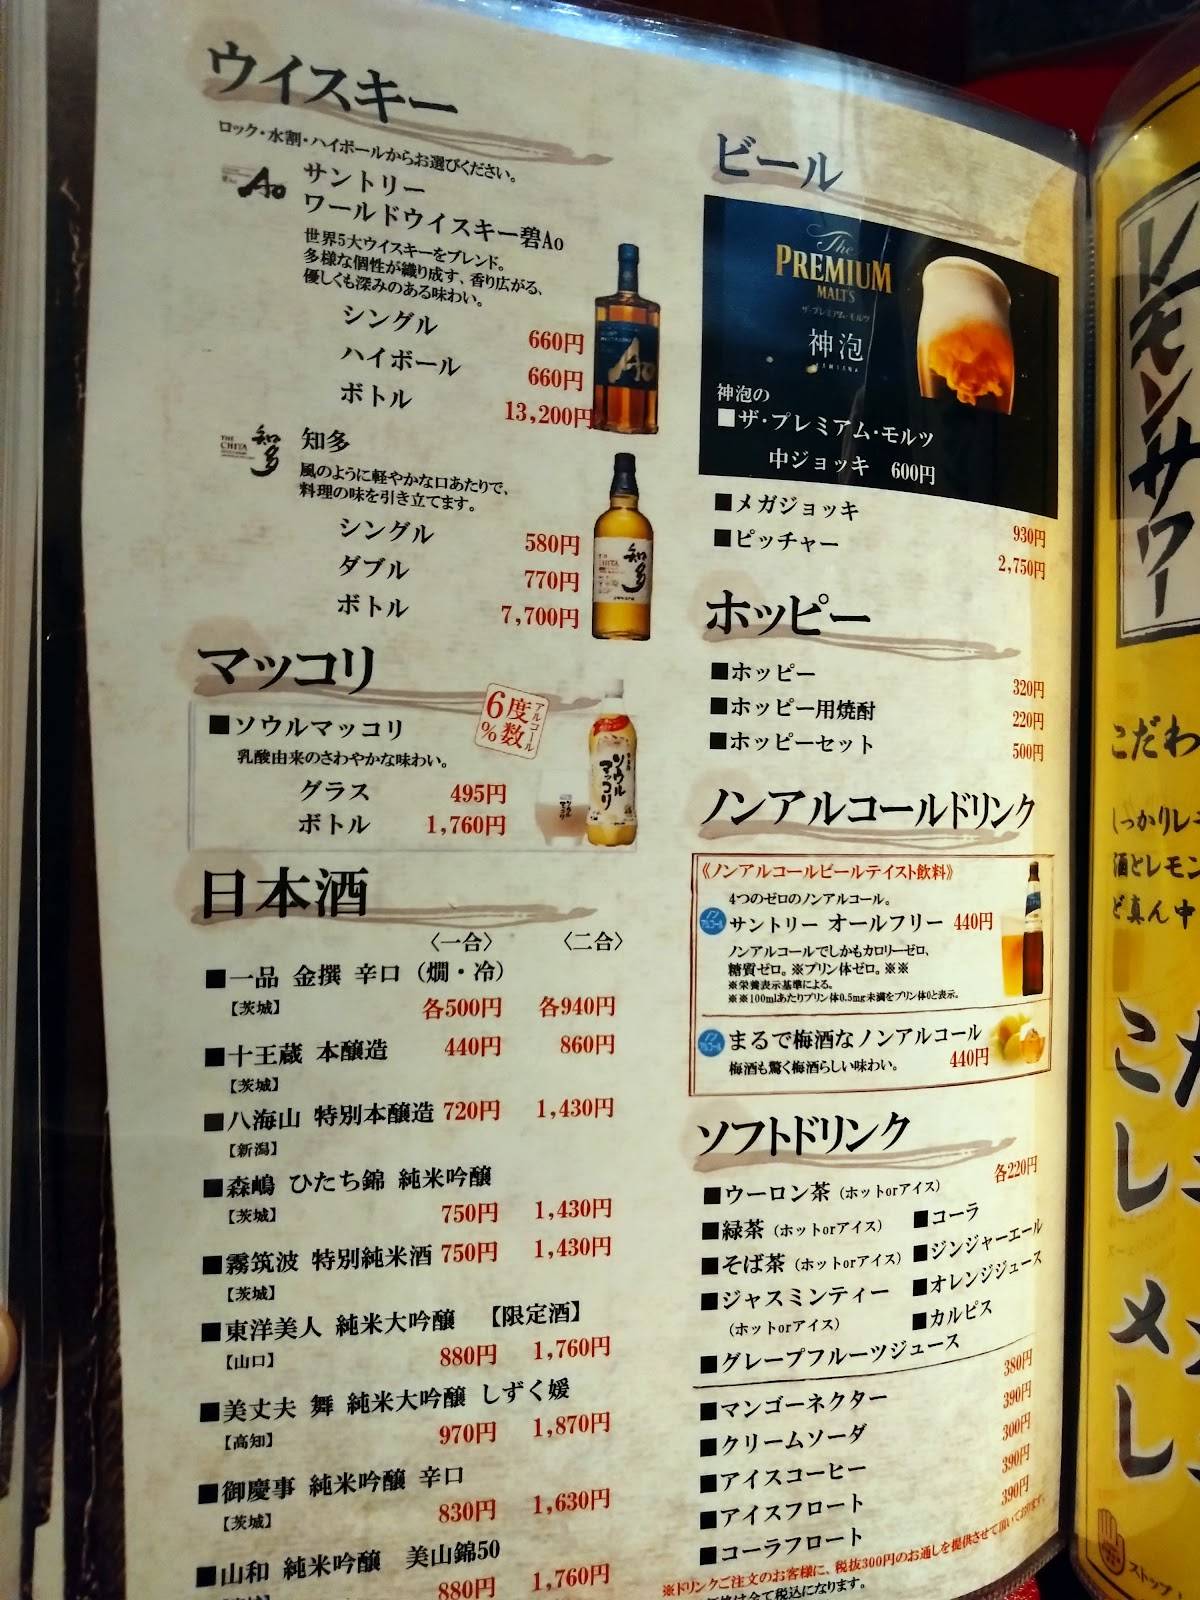 ウイスキー
ロック・水割・ハイボールからお選びください。
Ao
サントリー
ワールドウイスキー碧Ao
世界5大ウイスキーをブレンド。
多様な個性が織り成す、香り広がる、
優しくも深みのある味わい。
シングル 660円
ハイボール 660円
ボトル 13,200円
Ao
THE CHITA 知多
知多
風のように軽やかな口あたりで、
料理の味を引き立てます。
シングル 580円
ダブル 770円
ボトル 7,700円
知多
マッコリ
■ソウルマッコリ
アルコール度数6%
乳酸由来のさわやかな味わい。
グラス 495円
ボトル 1,760円
ソウルマッコリ
日本酒
〈一合〉 〈二合〉
■一品 金撰 辛口（燗・冷）
【茨城】 各500円 各940円
■十王蔵 本醸造 440円 860円
【茨城】
■八海山 特別本醸造 720円 1,430円
【新潟】
■森嶋 ひたち錦 純米吟醸
【茨城】 750円 1,430円
■霧筑波 特別純米酒 750円 1,430円
【茨城】
■東洋美人 純米大吟醸 【限定酒】
【山口】 880円 1,760円
■美丈夫 舞 純米大吟醸 しずく媛
【高知】 970円 1,870円
■御慶事 純米吟醸 辛口
【茨城】 830円 1,630円
■山和 純米吟醸 美山錦50
880円 1,760円
ビール
The
PREMIUM
MALT'S
ザ・プレミアム・モルツ
神泡
KAMIAWA
神泡の
■ザ・プレミアム・モルツ
中ジョッキ 600円
■メガジョッキ 930円
■ピッチャー 2,750円
ホッピー
■ホッピー 320円
■ホッピー用焼酎 220円
■ホッピーセット 500円
ノンアルコールドリンク
《ノンアルコールビールテイスト飲料》
4つのゼロのノンアルコール。
ノンアルコール サントリー オールフリー 440円
ノンアルコールでしかもカロリーゼロ、
糖質ゼロ。※プリン体ゼロ。※※
※栄養表示基準による。
※※100mlあたりプリン体0.5mg未満をプリン体0と表示。
ノンアルコール まるで梅酒なノンアルコール
梅酒も驚く梅酒らしい味わい。 440円
ソフトドリンク
各220円
■ウーロン茶（ホットorアイス）
■緑茶（ホットorアイス）
■そば茶（ホットorアイス）
■ジャスミンティー
（ホットorアイス）
■グレープフルーツジュース
■コーラ
■ジンジャーエール
■オレンジジュース
■カルピス
■マンゴーネクター 380円
■クリームソーダ 390円
■アイスコーヒー 300円
■アイスフロート 390円
■コーラフロート 390円
※ドリンクご注文のお客様に、税抜300円のお通しを提供させて頂いております。
価格は全て税込になります。
レモンサワー
こだわ
しっかりレモ
酒とレモン
ど真ん中
こだ
こし
メ
し
ストップ